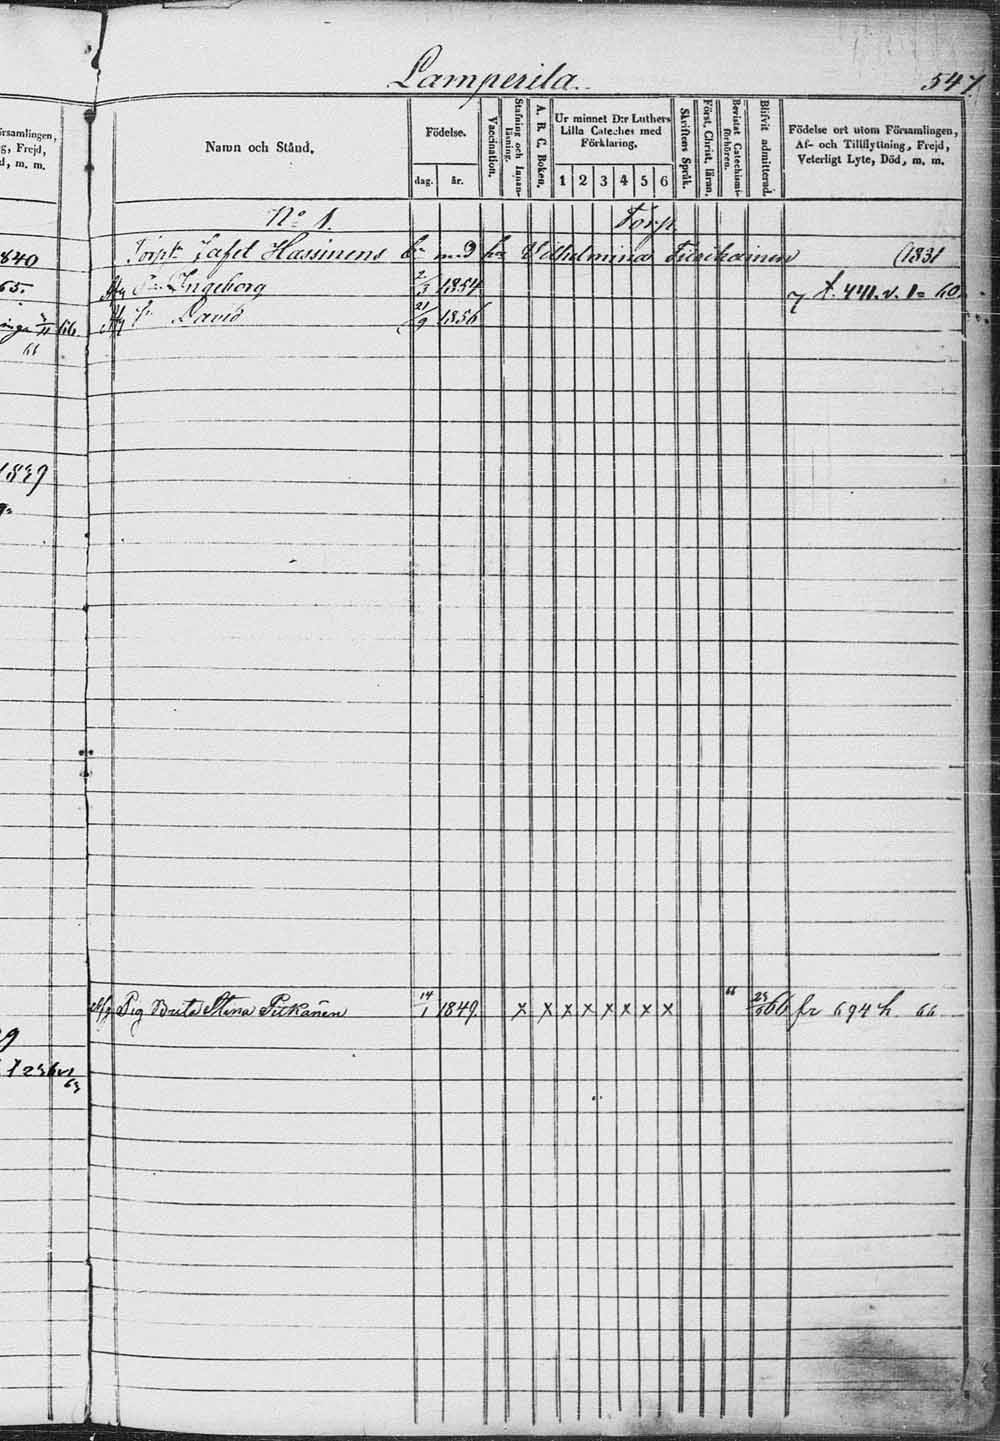 Lamperila.
547
örsamlingen,
g, Frejd,
d, m. m.
Namn och Stånd.
Födelse.
dag. år.
Vaccination.
Stafning och Innan-läsning.
A. B. C. Boken.
Ur minnet D:r Luthers
Lilla Cateches med
Förklaring.
1 2 3 4 5 6
Skriftens Språk.
Först. Christ. läran.
Bevistat Catechismi-förhören.
Blifvit admitterad.
Födelse ort utom Församlingen,
Af- och Tillflyttning, Frejd,
Veterligt Lyte, Död, m. m.
No 1. Torp.
1840
Torpn Jafet Hassinens barn med hu Vilhelmina (1831
65.
Ingeborg 2/3 1854 t. 441. v. 1= 60
David 21/9 1856
66
1839
Pig Brita Stina Pitkänen 14/1 1849. x x x x x x x x " 66 fr 694 h 66
9
63